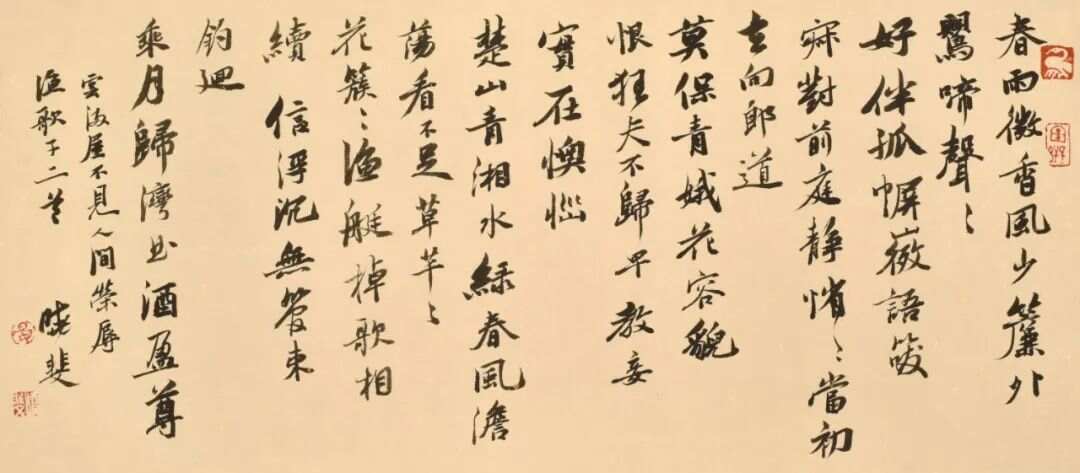 春雨微香風少簾外
鸎啼聲〻
好伴孤幈微語咲
寂對前庭靜悄〻當初
去向郎道
莫保青娥花容貌
恨狂夫不歸早教妾
實在懊惱
楚山青湘水綠春風澹
蕩看不足草芊〻
花簇〻漁艇棹歌相
續 信浮沉無管束
釣迴
乘月歸灣曲酒盈尊
雲滿屋不見人間榮辱
漁歌子二首 曉斐